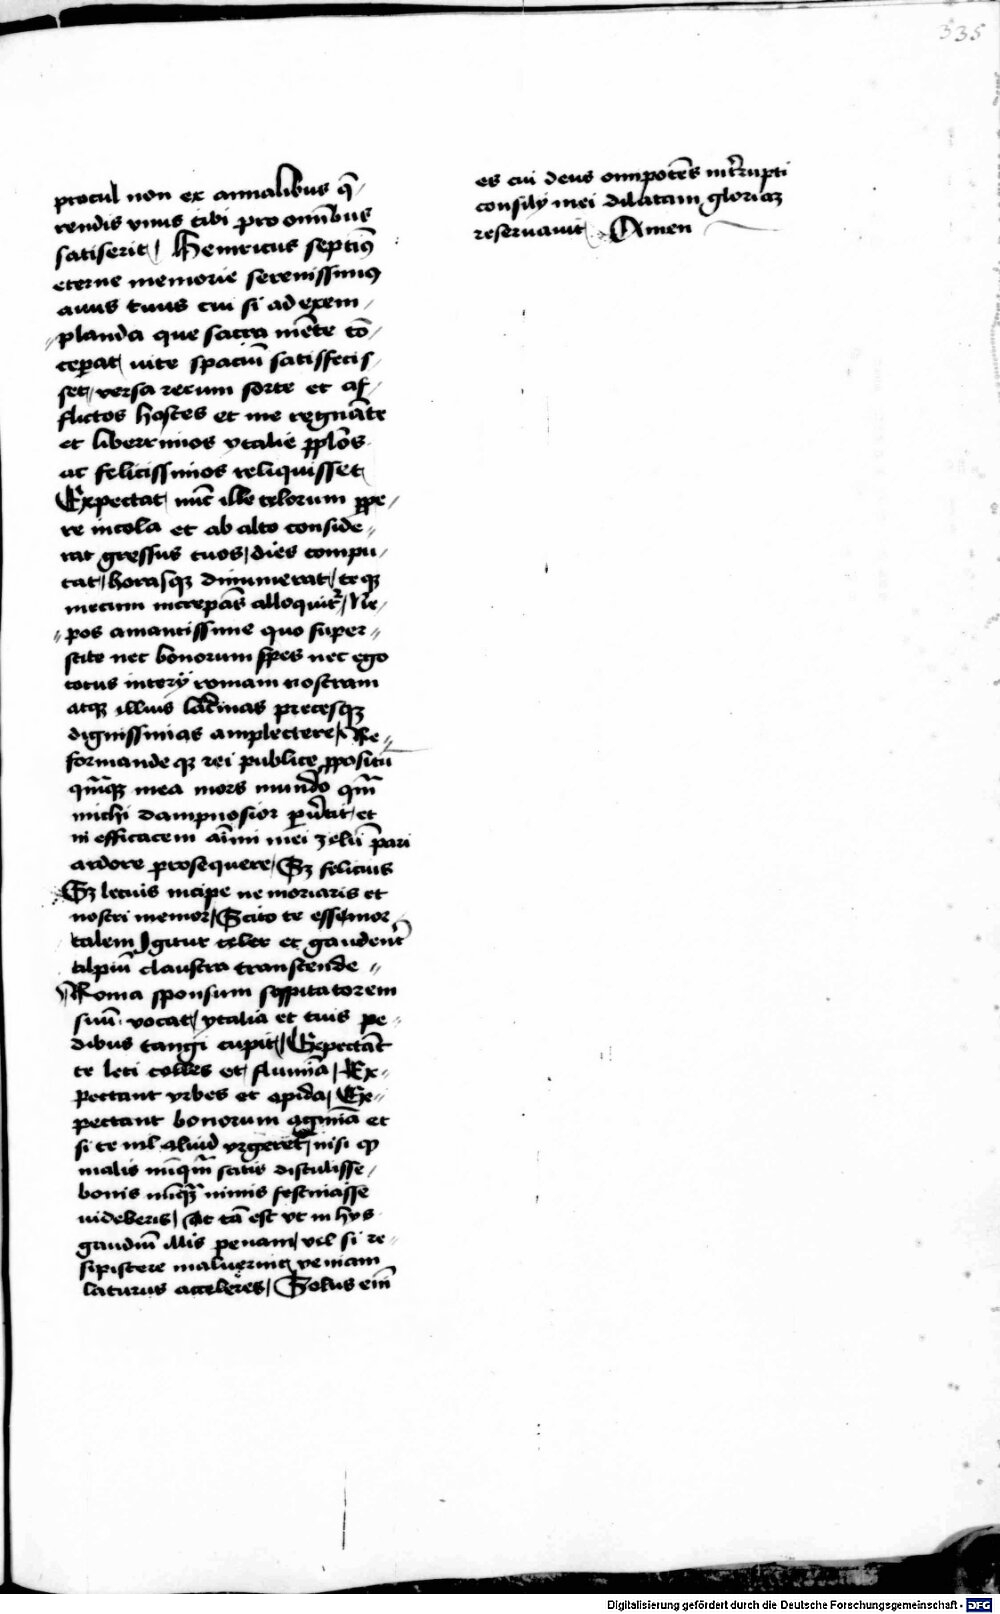 335
procul non ex annalibus q̄-
rendis vnus tibi pro omībus
satiserit / Henricus septimꝰ
eterne memorie serenissimꝰ
auus tuus cui si ad exem-
planda que sacra mēte cō-
ceperat vite spaciū satisfecis-
set / versa rerum sorte et af-
flictos hostes et me regnāte
et liberrimos ytalie pplōs
ac felicissimos reliquisset
Expectat nūc ille celorum ppe-
re incola et ab alto conside-
rat gressus tuos / dies compu-
tat / horasqꝫ dinumerat / teqꝫ
mecum increpās alloquitr̄ / Ne-
pos amantissime quo super-
stite nec bonorum spes nec ego
totus interij romam nostram
atqꝫ illius lac̄mas precesqꝫ
dignissimas amplectere / Re-
formande qꝫ rei publice ppositū
qm̄qꝫ mea mors mundo qm̄
michi dampnosior pūtit / et
in efficacem aīmi mei zelū pari
ardore prosequere / Sꝫ felicius
Sꝫ letius incipe ne moriaris et
nostri memor / Scito te esse mor
talem Igitur celer et gaudent̄
alpiū claustra transcende
Roma sponsum sospitatorem
suū vocat / ytalia et tuis pe-
dibus tangi cupit / Expectāt
te leti colles et flumīa / Ex-
pectant vrbes et opida / Ex-
pectant bonorum agmīa et
si te nil aliud vrgeret / nisi qꝫ
malis nūqm̄ satis distulisse /
bonis nūqꝫ nimis festinasse
videberis / At tā est vt in hys
gaudiū illis penam / vel si re-
sipistere maluerint veniam
laturus acceleres / Solus em̄
es cui deus omnipotēs inter̄rupti
consilij mei dilatam gloriaꝫ
reseruauit . Amen
Digitalisierung gefördert durch die Deutsche Forschungsgemeinschaft - DFG